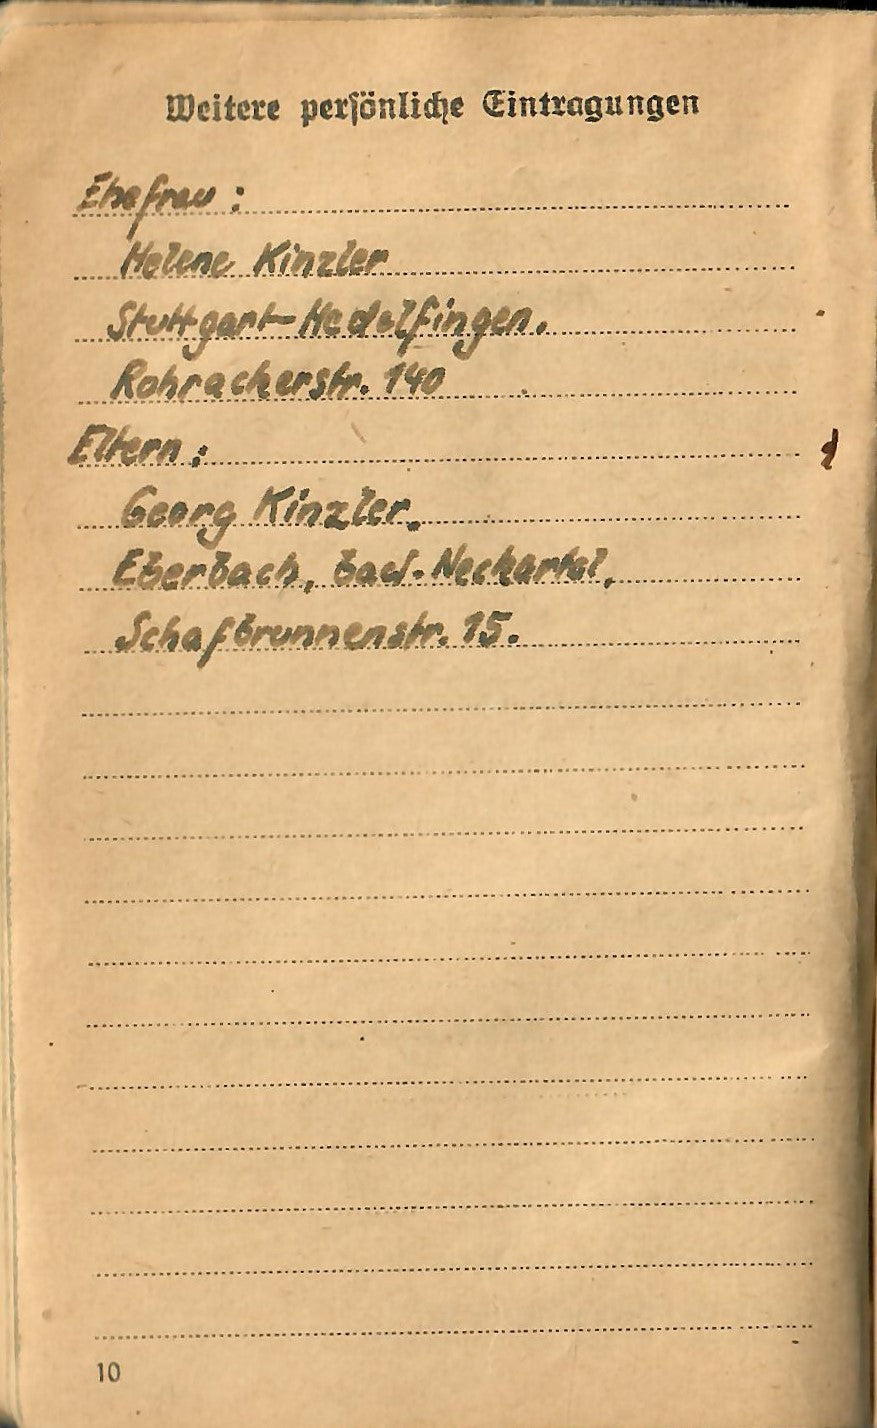 Weitere persönliche Eintragungen
Ehefrau :
Helene Kinzler
Stuttgart-Hedelfingen.
Rohrackerstr. 140
Eltern :
Georg Kinzler.
Eberbach, bad. Neckartal,
Schafbrunnenstr. 15.
10